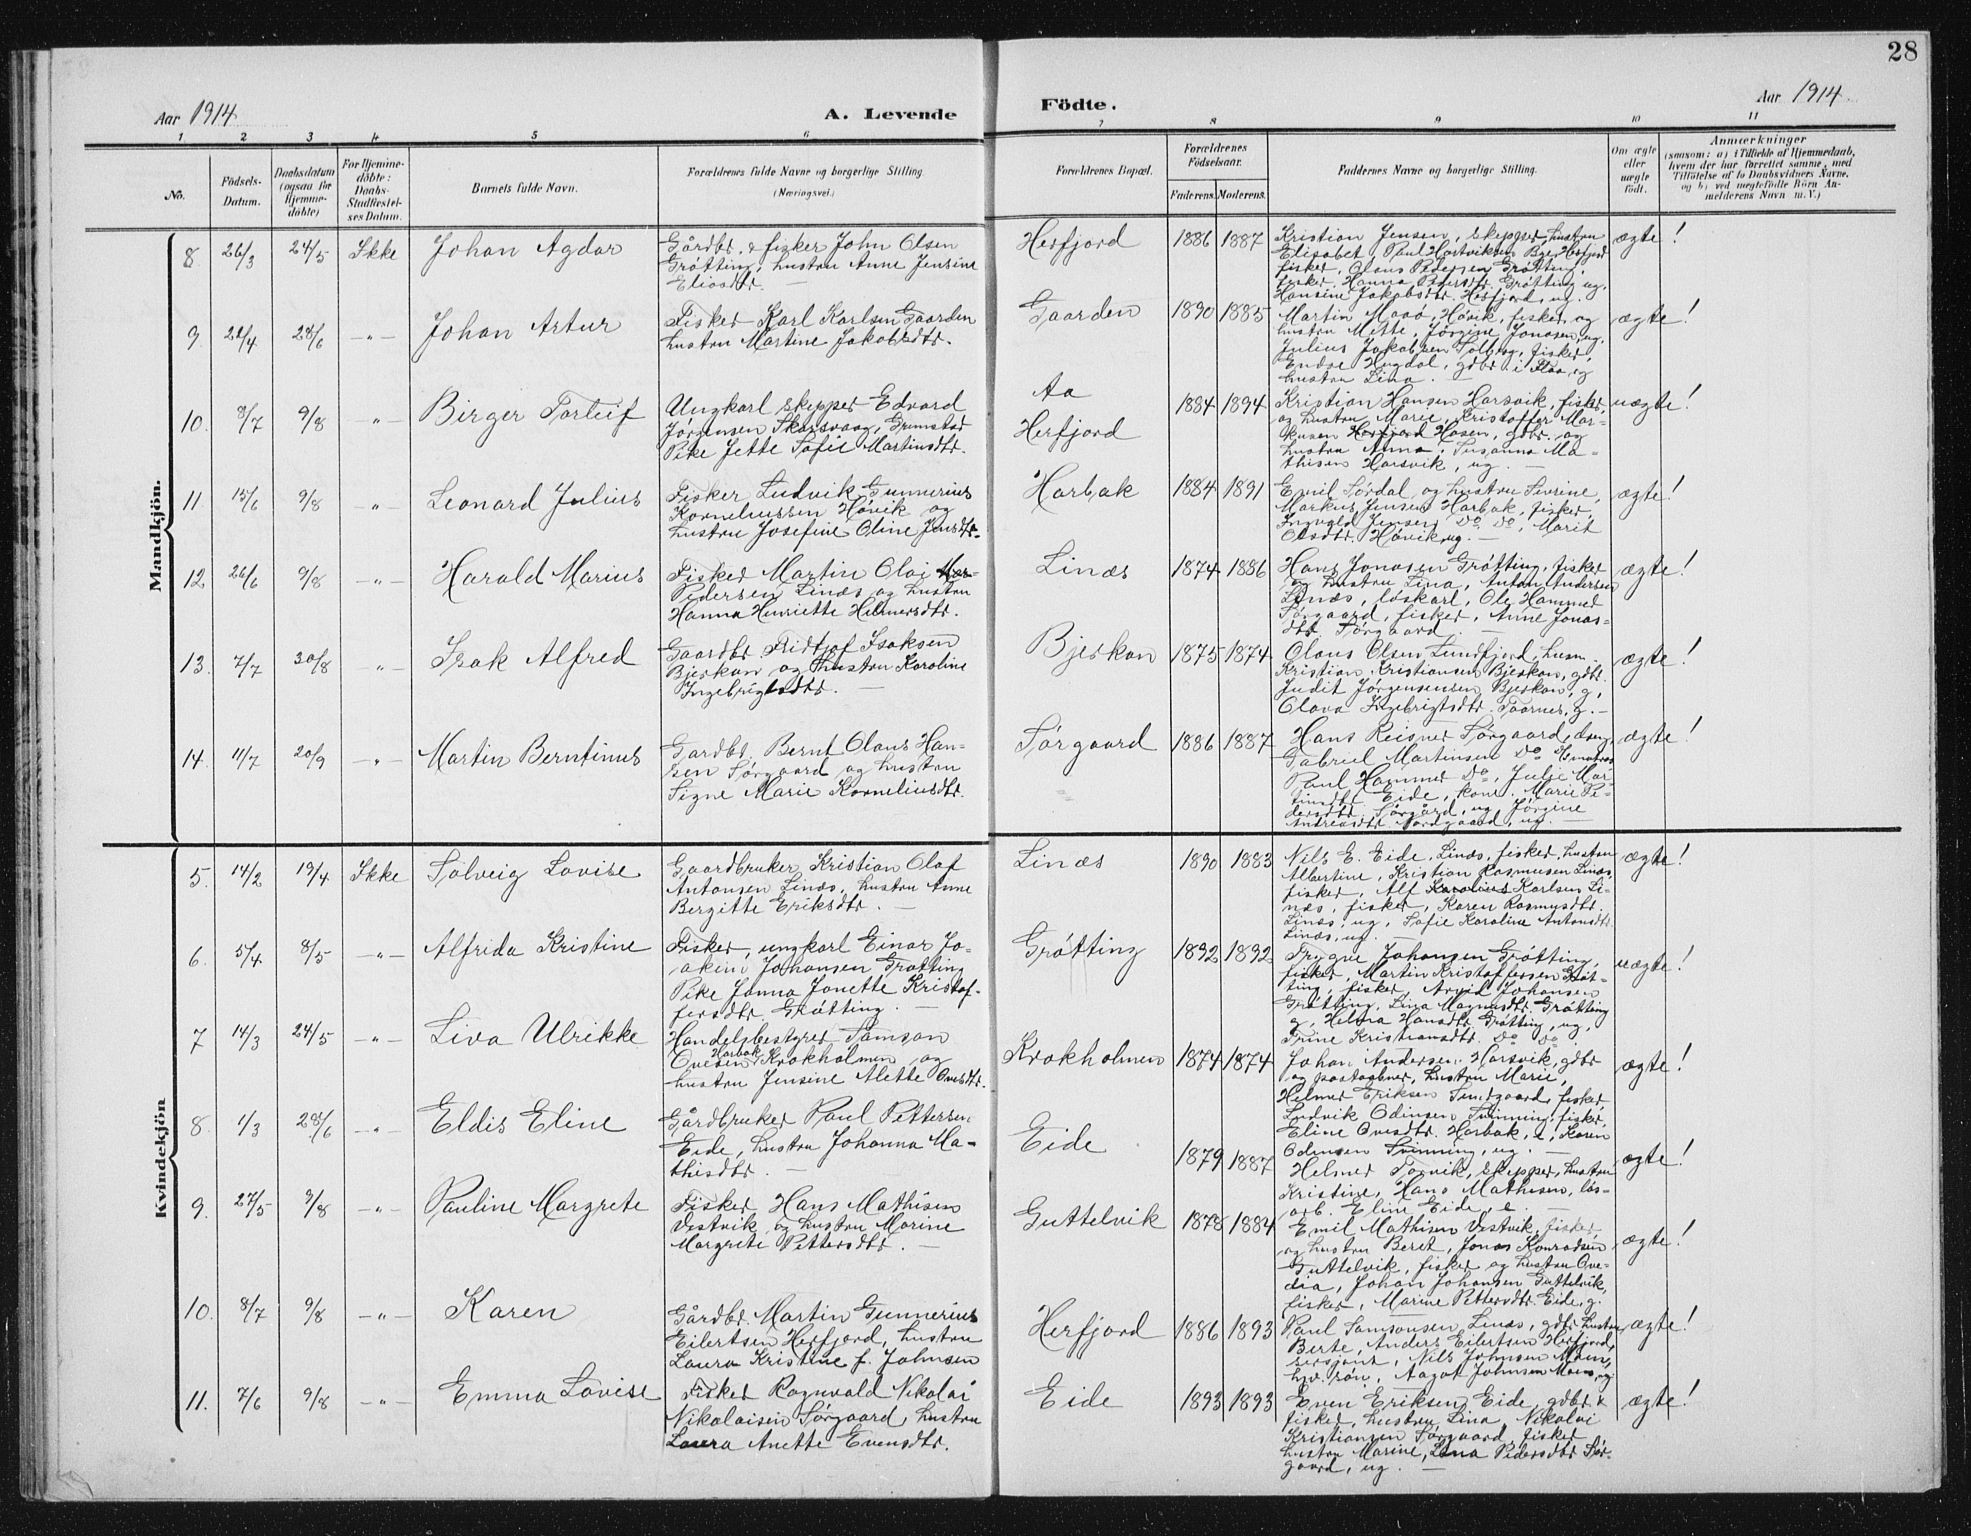 28
Aar 1914
A. Levende Födte.
Aar 1914
1 2 3 4 5 6 7 8 9 10 11
No.
Födsels-Datum.
Daabsdatum (ogsaa for Hjemmedöbte)
For Hjemmedöbte: Daabs-Stadfæstelses Datum.
Barnets fulde Navn.
Forældrenes fulde Navne og borgerlige Stilling. (Næringsvei.)
Forældrenes Bopæl.
Forældrenes Födselsaar.
Faderens. Moderens.
Faddernes Navne og borgerlige Stilling.
Om ægte eller uægte födt.
Anmærkninger
(saasom: a) i Tilfælde af Hjemmedaab, hvem der har forrettet samme, med Tilföielse af to Daabsvidners Navne, og b) ved uægtefödte Börn Anmelderens Navn m. V.)
Mandkjön.
8. 26/3 24/5 Ikke Johan Agdar
Gårdbr. & fisker John Olsen
Grøtting, hustru Anne Jensine
Eliasdtr. —
Herfjord 1886 1887
Kristian Jensen, skipper, hustru
Elisabet, Paul Hartviksen Bjer Herfjord
fisker, Olaus Pedersen Grøtting,
fisker, Hanna Petersdtr. Grøtting ug.
Hansine Jakobsdtr. Herfjord, ug.
ægte!
9. 22/4 28/6 —"— Johan Artur
Fisker Karl Karlsen Gaarden
hustru Martine Jakobsdtr.
Gaarden 1890 1885
Martin Moaø, Høvik, fisker, og
hustru Mette, Jørgine Jonasen, ug.
Julius Jakobsen Solberg, fisker,
Endre Hugdal, gdbr. i Flaa, og
hustru Lina. —
ægte!
10. 8/7 9/8 —"— Birger Torleif
Ungkarl skipper Edvard
Jørgensen Skarsvaag, Grimstad
Pike Jette Sofie Martinsdtr.
Aa
Herfjord
1884 1894
Kristian Hansen Harsvik, fisker,
og hustru Marie, Kristoffer Mar-
kusen Herfjord Hosen, gdbr. og
hustru Anna, Susanna Ma-
thisen Harsvik, ug. —
uægte!
11. 15/6 9/8 —"— Leonard Julius
Fisker Ludvik Gunnerius
Korneliussen Høvik og
hustru Josefine Oline Jensdtr.
Harbak 1884 1891
Emil Sørdal og hustru Sevrine,
Markus Jensen Harbak, fisker,
Ingvald Jensen, Do Do, Marit
Olsdtr. Høvik, ug. —
ægte!
12. 26/6 9/8 —"— Harald Marius
Fisker Martin Olai
Pedersen Linæs og hustru
Hanna Henriette Helmersdtr.
Linæs 1874 1886
Hans Jonasen Grøtting, fisker
og hustru Lina, Anton Andersen
Linæs, løskarl, Ole Hammer
Sørgaard, fisker, Anne Jonas-
dtr. Sørgaard —
ægte!
13. 7/7 30/8 —"— Isak Alfred
Gaardbr. Fridtjof Isaksen
Bjerkan og hustru Karoline
Ingebrigtsdtr. —
Bjerkan 1875 1874
Olaus Olsen Sundfjord, husm.
Kristian Kristiansen Bjerkan, gdbr.
Judit Jørgensen Bjerkan, g.,
Olava Ingebrigtsdtr. Taarnes, g. —
ægte!
14. 11/7 20/9 —"— Martin Berntinus
Gårdbr. Bernt Olaus Han-
sen Sørgaard og hustru
Signe Marie Korneliusdtr.
Sørgaard 1886 1887
Hans Reisner Sørgaard, dreng,
Gabriel Martinsen Do
Paul Hammer Do, Julie Mar-
tinsdtr. Eide, kone, Marie Pe-
dersdtr. Sørgård, ug, Jørgine
Andreasdtr. Nordgaard, ug. —
ægte!
Kvindekjön
5. 14/2 19/4 Ikke Solveig Lovise
Gaardbruker Kristian Olaf
Antonsen Linæs, hustru Anne
Bergitte Eriksdtr. —
Linæs 1890 1883
Nils E. Eide, Linæs, fisker, hustru
Albertine, Kristian Rasmussen Linæs,
fisker, Alf Karolius Karlsen Li-
næs, fisker, Karen Rasmusdtr.
Linæs, ug, Sofie Karoline Antonsdtr.
Linæs, ug. —
ægte!
6. 5/4 8/5 —"— Alfrida Kristine
Fisker, ungkarl Einar Jo-
akim Johansen Grøtting
Pike Janna Jonette Kristof-
fersdtr. Grøtting. —
Grøtting 1892 1892
Trygve Johansen Grøtting,
fisker, Martin Kristoffersen Grøt-
ting, fisker, Arvid Johansen
Grøtting, Lina Magnusdtr. Grøtting
g, Helma Hansdtr. Grøtting, ug,
Trine Kristiansdtr. Do Do.
uægte!
7 14/3 24/5 —"— Liva Ulrikke
Handelsbestyrer Samson
Ovesen Harbak Krokholmen og
hustru Jensine Alette Ovesdtr.
Krokholmen 1874 1874
Johan Andersen Harsvik, gdbr.
og postaabner, hustru Marie,
Helmer Eriksen Sundgaard, fisker,
Ludvik Odinsen Svinning, fisker,
Eline Ovesdtr. Harbak, e, Karen
Odinsen Svinning, ug. —
ægte!
8. 1/3 28/6 —"— Eldis Eline
Gårdbruker Paul Pettersen
Eide, hustru Johanna Ma-
thisdtr. —
Eide 1879 1887
Helmer Torvik, skipper, hustru
Kristine, Hans Mathisen, løs-
arb. Eline Eide, e. —
ægte!
9. 27/5 9/8 —"— Pauline Margrete
Fisker Hans Mathisen
Vestvik og hustru Marine
Margrete Pettersdtr. —
Guttelvik 1878 1884
Emil Mathisen Vestvik, fisker,
og hustru Beret, Jonas Konradsen
Guttelvik, fisker og hustru Ove-
dia, Johan Johansen Guttelvik,
fisker, Marine Pettersdtr. Eide, g.
ægte!
10. 8/7 9/8 —"— Karen
Gårdbr. Martin Gunnerius
Eilertsen Herfjord, hustru
Laura Kristine f. Johnsen
Herfjord 1886 1893
Paul Samsonsen Linæs, gdbr. hustru
Berte, Anders Eilertsen Herfjord,
sersjant, Nils Johnsen Moen,
Aagot Johnsen Moen, ug
ægte!
11. 7/6 9/8 —"— Emma Lovise
Fisker Ragnvald Nikolai
Nikolaisen Sørgaard, hustru
Laura Anette Evensdtr.
Eide 1893 1893
Even Eriksen Eide, gdbr. &
fisker, hustru Lina, Nikolai
Kristiansen Sørgaard, fisker
hustru Marine, Lina Pedersdtr Sør-
gaard, ug. —
ægte!